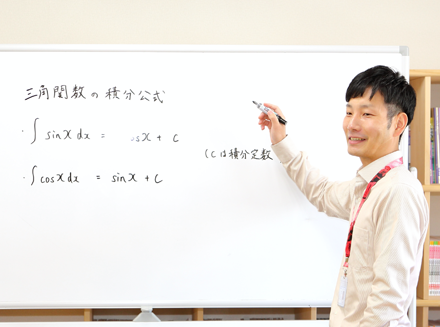 三角関数の積分公式
・∫ sinx dx = osx + C
(Cは積分定数
・∫ cosx dx = sinx + C